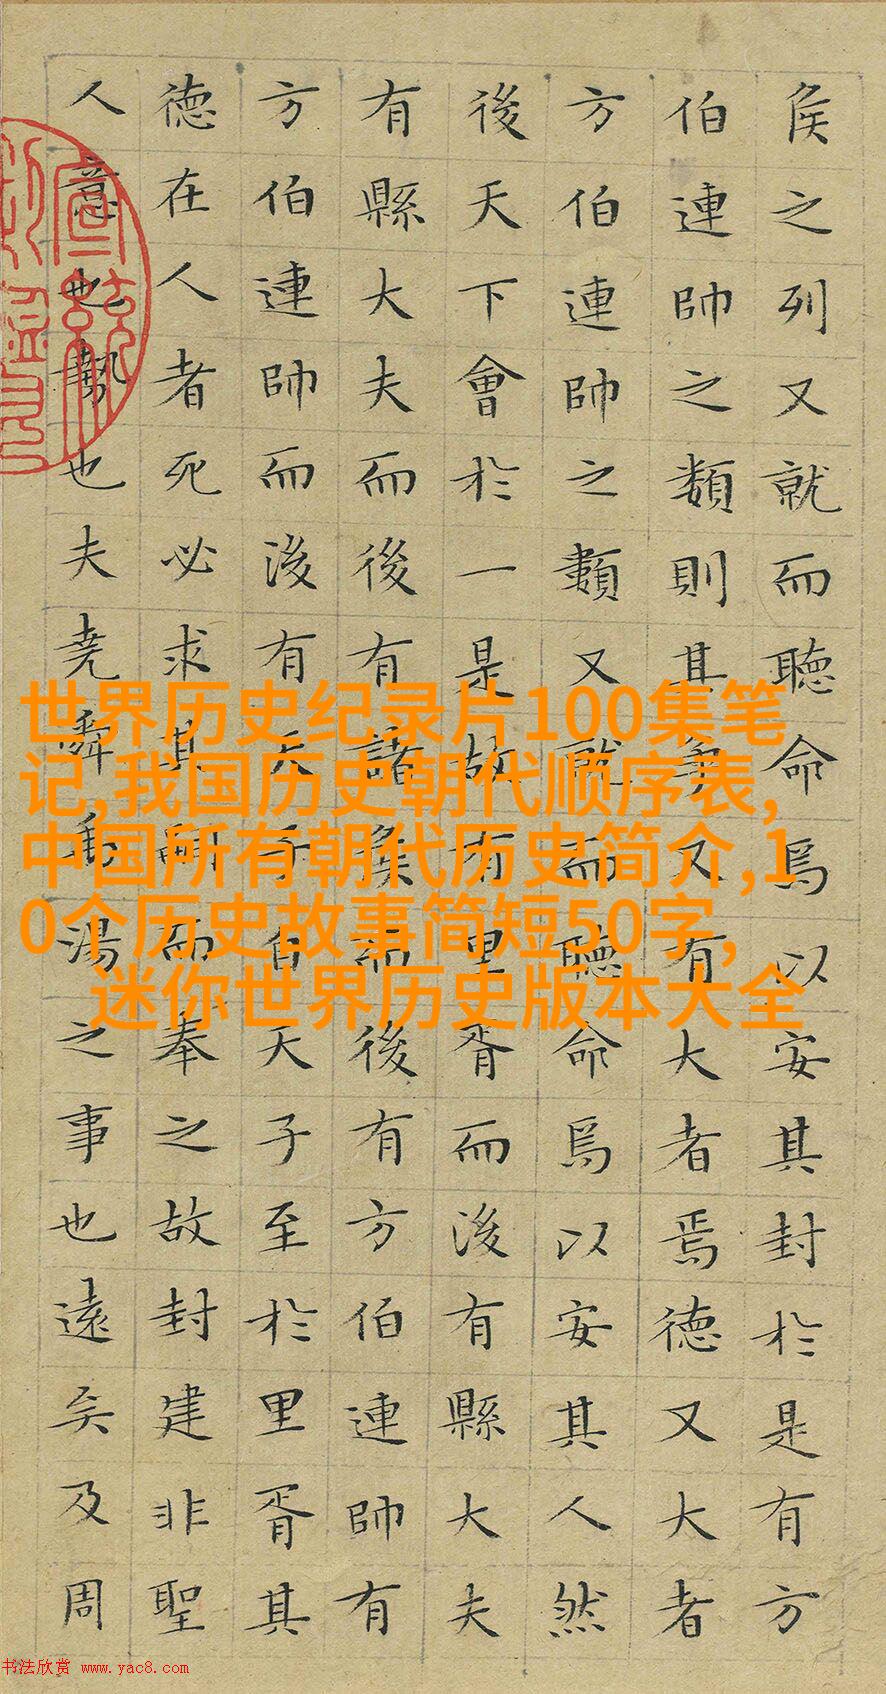 侯之列又就而聽命焉以安其封於是有方
伯連帥之類則其爭又有大者焉德又大者
方伯連帥之類又就而聽命焉以安其人然
後天下會於一是故有里胥而後有縣大夫
有縣大夫而後有諸侯而後有方伯連帥有
方伯連帥而後有天子自天子至於里胥其
德在人者死必求其嗣而奉之故封建非聖
人意也勢也夫堯舜禹湯之事也遠矣及周
世界历史纪录片100集笔
记,我国历史朝代顺序表,
中国所有朝代历史简介,1
0个历史故事简短50字,
迷你世界历史版本大全
书法欣赏 www.yac8.com